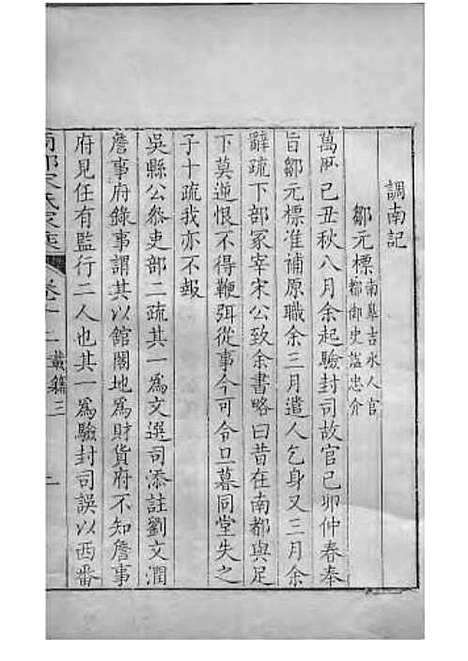 調南記
鄒元標南臯吉水人官都御史謚忠介
萬厯己丑秋八月余起驗封司故官己卯仲春奉
旨鄒元標准補原職余三月遣人乞身又三月余
辭疏下部冢宰宋公致余書略曰昔在南都與足
下莫逆恨不得鞭弭從事今可令旦暮同堂失之
子十疏我亦不報
吳縣公叅吏部二疏其一為文選司添註劉文潤
詹事府錄事謂其以館閣地為財貨府不知詹事
府見任有監行二人也其一為驗封司誤以西番
卷十二 載籍三